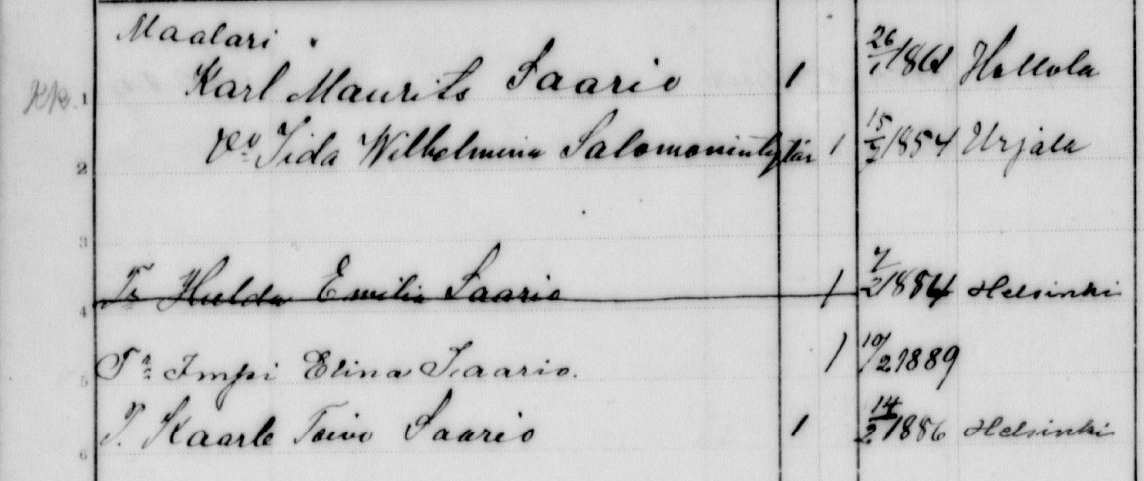 Maalari
Kk. 1 Karl Maurits Saario 1 26/1 1861 Hollola
2 Vo Iida Wilhelmina Salomonintytär 1 15/2 1854 Urjala
3
4 Tr Hulda Emilia Saario 1 7/2 1884 Helsinki
5 Tr Impi Elina Saario. 1 10/2 1889
6 P. Kaarle Toivo Saario 1 14/2 1886 Helsinki